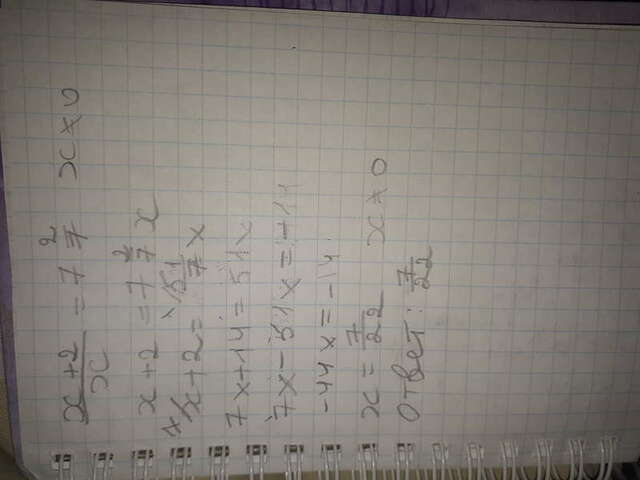 (x+2)/x = 7 2/7   x ≠ 0
x+2 = 7 2/7 x
7/ x+2 = \ 51/7 x
7x+14 = 51x
7x-51x = -14
-44x = -14
x = 7/22   x ≠ 0
Ответ: 7/22